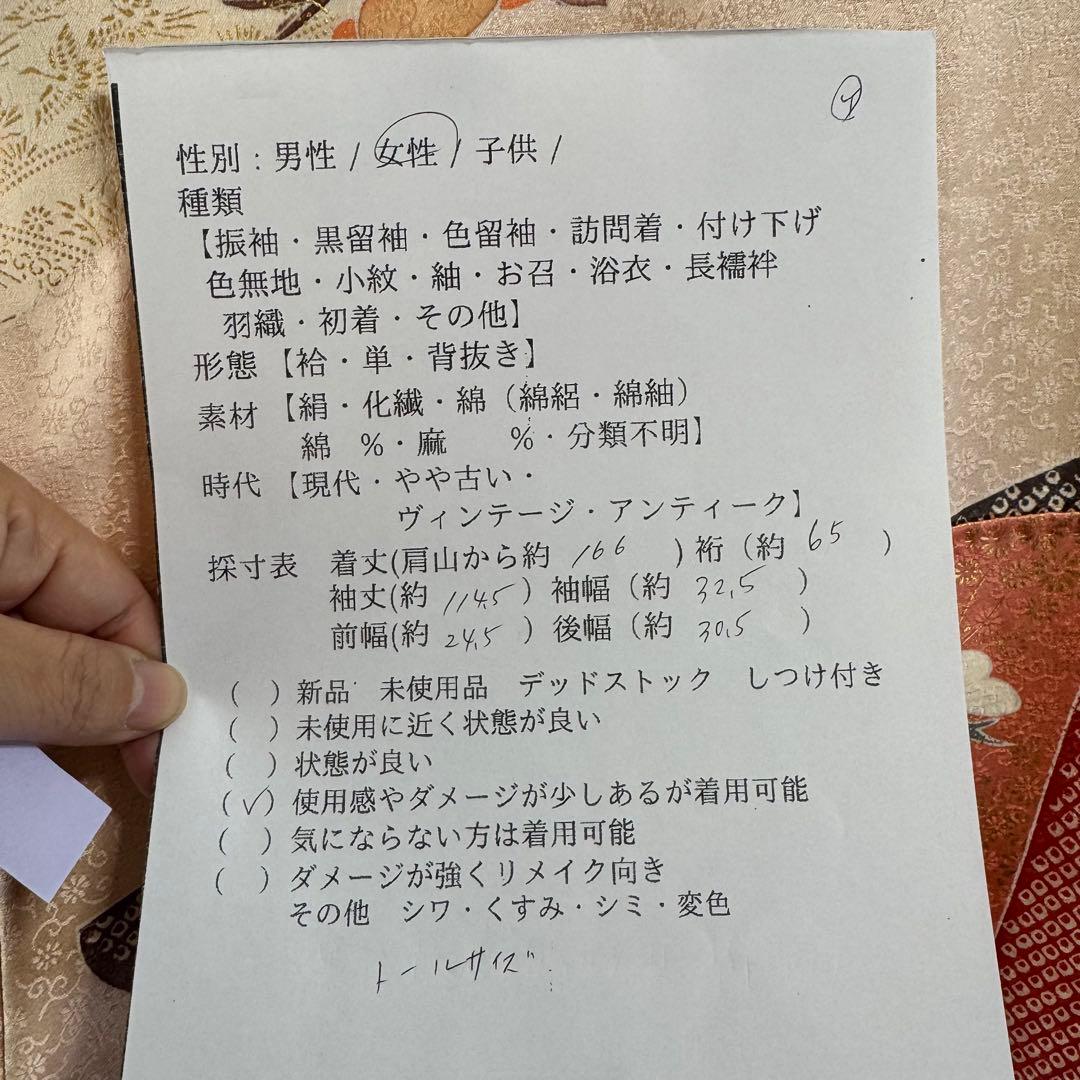 性別：男性 / 女性 / 子供 /
種類
【振袖・黒留袖・色留袖・訪問着・付け下げ
色無地・小紋・紬・お召・浴衣・長襦袢
羽織・初着・その他】
形態 【袷・単・背抜き】
素材 【絹・化繊・綿（綿絽・綿紬）
綿 %・麻 %・分類不明】
時代 【現代・やや古い・
ヴィンテージ・アンティーク】
採寸表 着丈(肩山から約 166 ) 裄（約 65 ）
袖丈(約 114.5 ) 袖幅（約 32.5 ）
前幅(約 24.5 ) 後幅（約 30.5 ）
（ ）新品 未使用品 デッドストック しつけ付き
（ ）未使用に近く状態が良い
（ ）状態が良い
（✓）使用感やダメージが少しあるが着用可能
（ ）気にならない方は着用可能
（ ）ダメージが強くリメイク向き
その他 シワ・くすみ・シミ・変色
トールサイズ